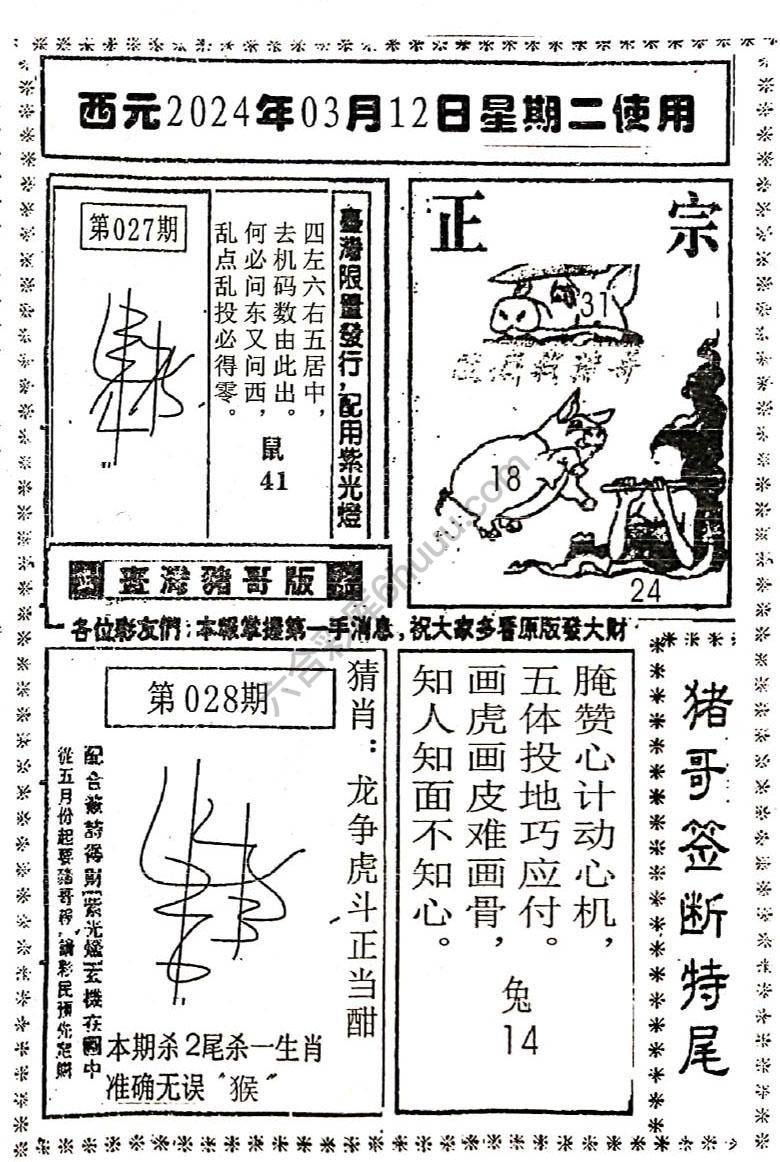 西元2024年03月12日星期二使用
第027期
四左六右五居中，
去机码数由此出。
何必问东又问西，
乱点乱投必得零。
鼠
41
臺灣限量發行，配用紫光燈
正宗
31
18
24
臺灣豬哥版
各位彩友們：本報掌握第一手消息，祝大家多看原版發大財
第028期
猜肖：龙争虎斗正当酣
從五月份起要豬哥報，請彩民預先定購
本期杀2尾杀一生肖
准确无误“猴”
腌赞心计动心机，
五体投地巧应付。
画虎画皮难画骨，
知人知面不知心。
兔
14
猪哥签断特尾
六合彩库6huuu.com